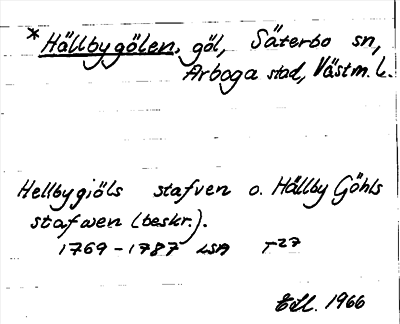 *Hällbygölen, göl, Säterbo sn,
Arboga stad, Västm. l.
Hellbygiöls stafven o. Hällby Göhls
stafwen (beskr.).
1769-1787 LSA T27
EM. 1966